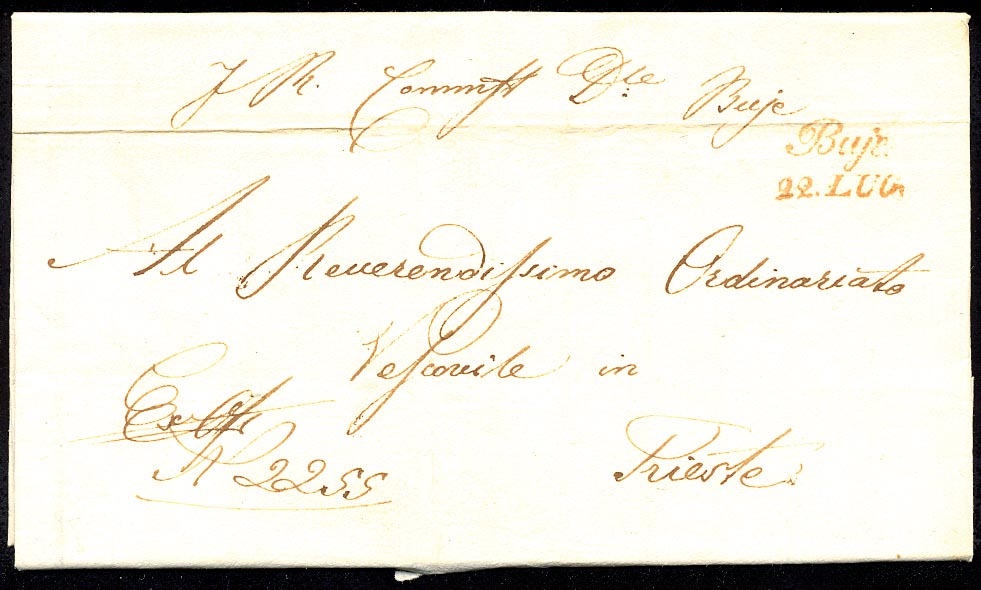 I. R. Commiss D.te Buje
Buje
22. LUG
Al Reverendissimo Ordinariato
Vescovile in
Trieste
N 2255